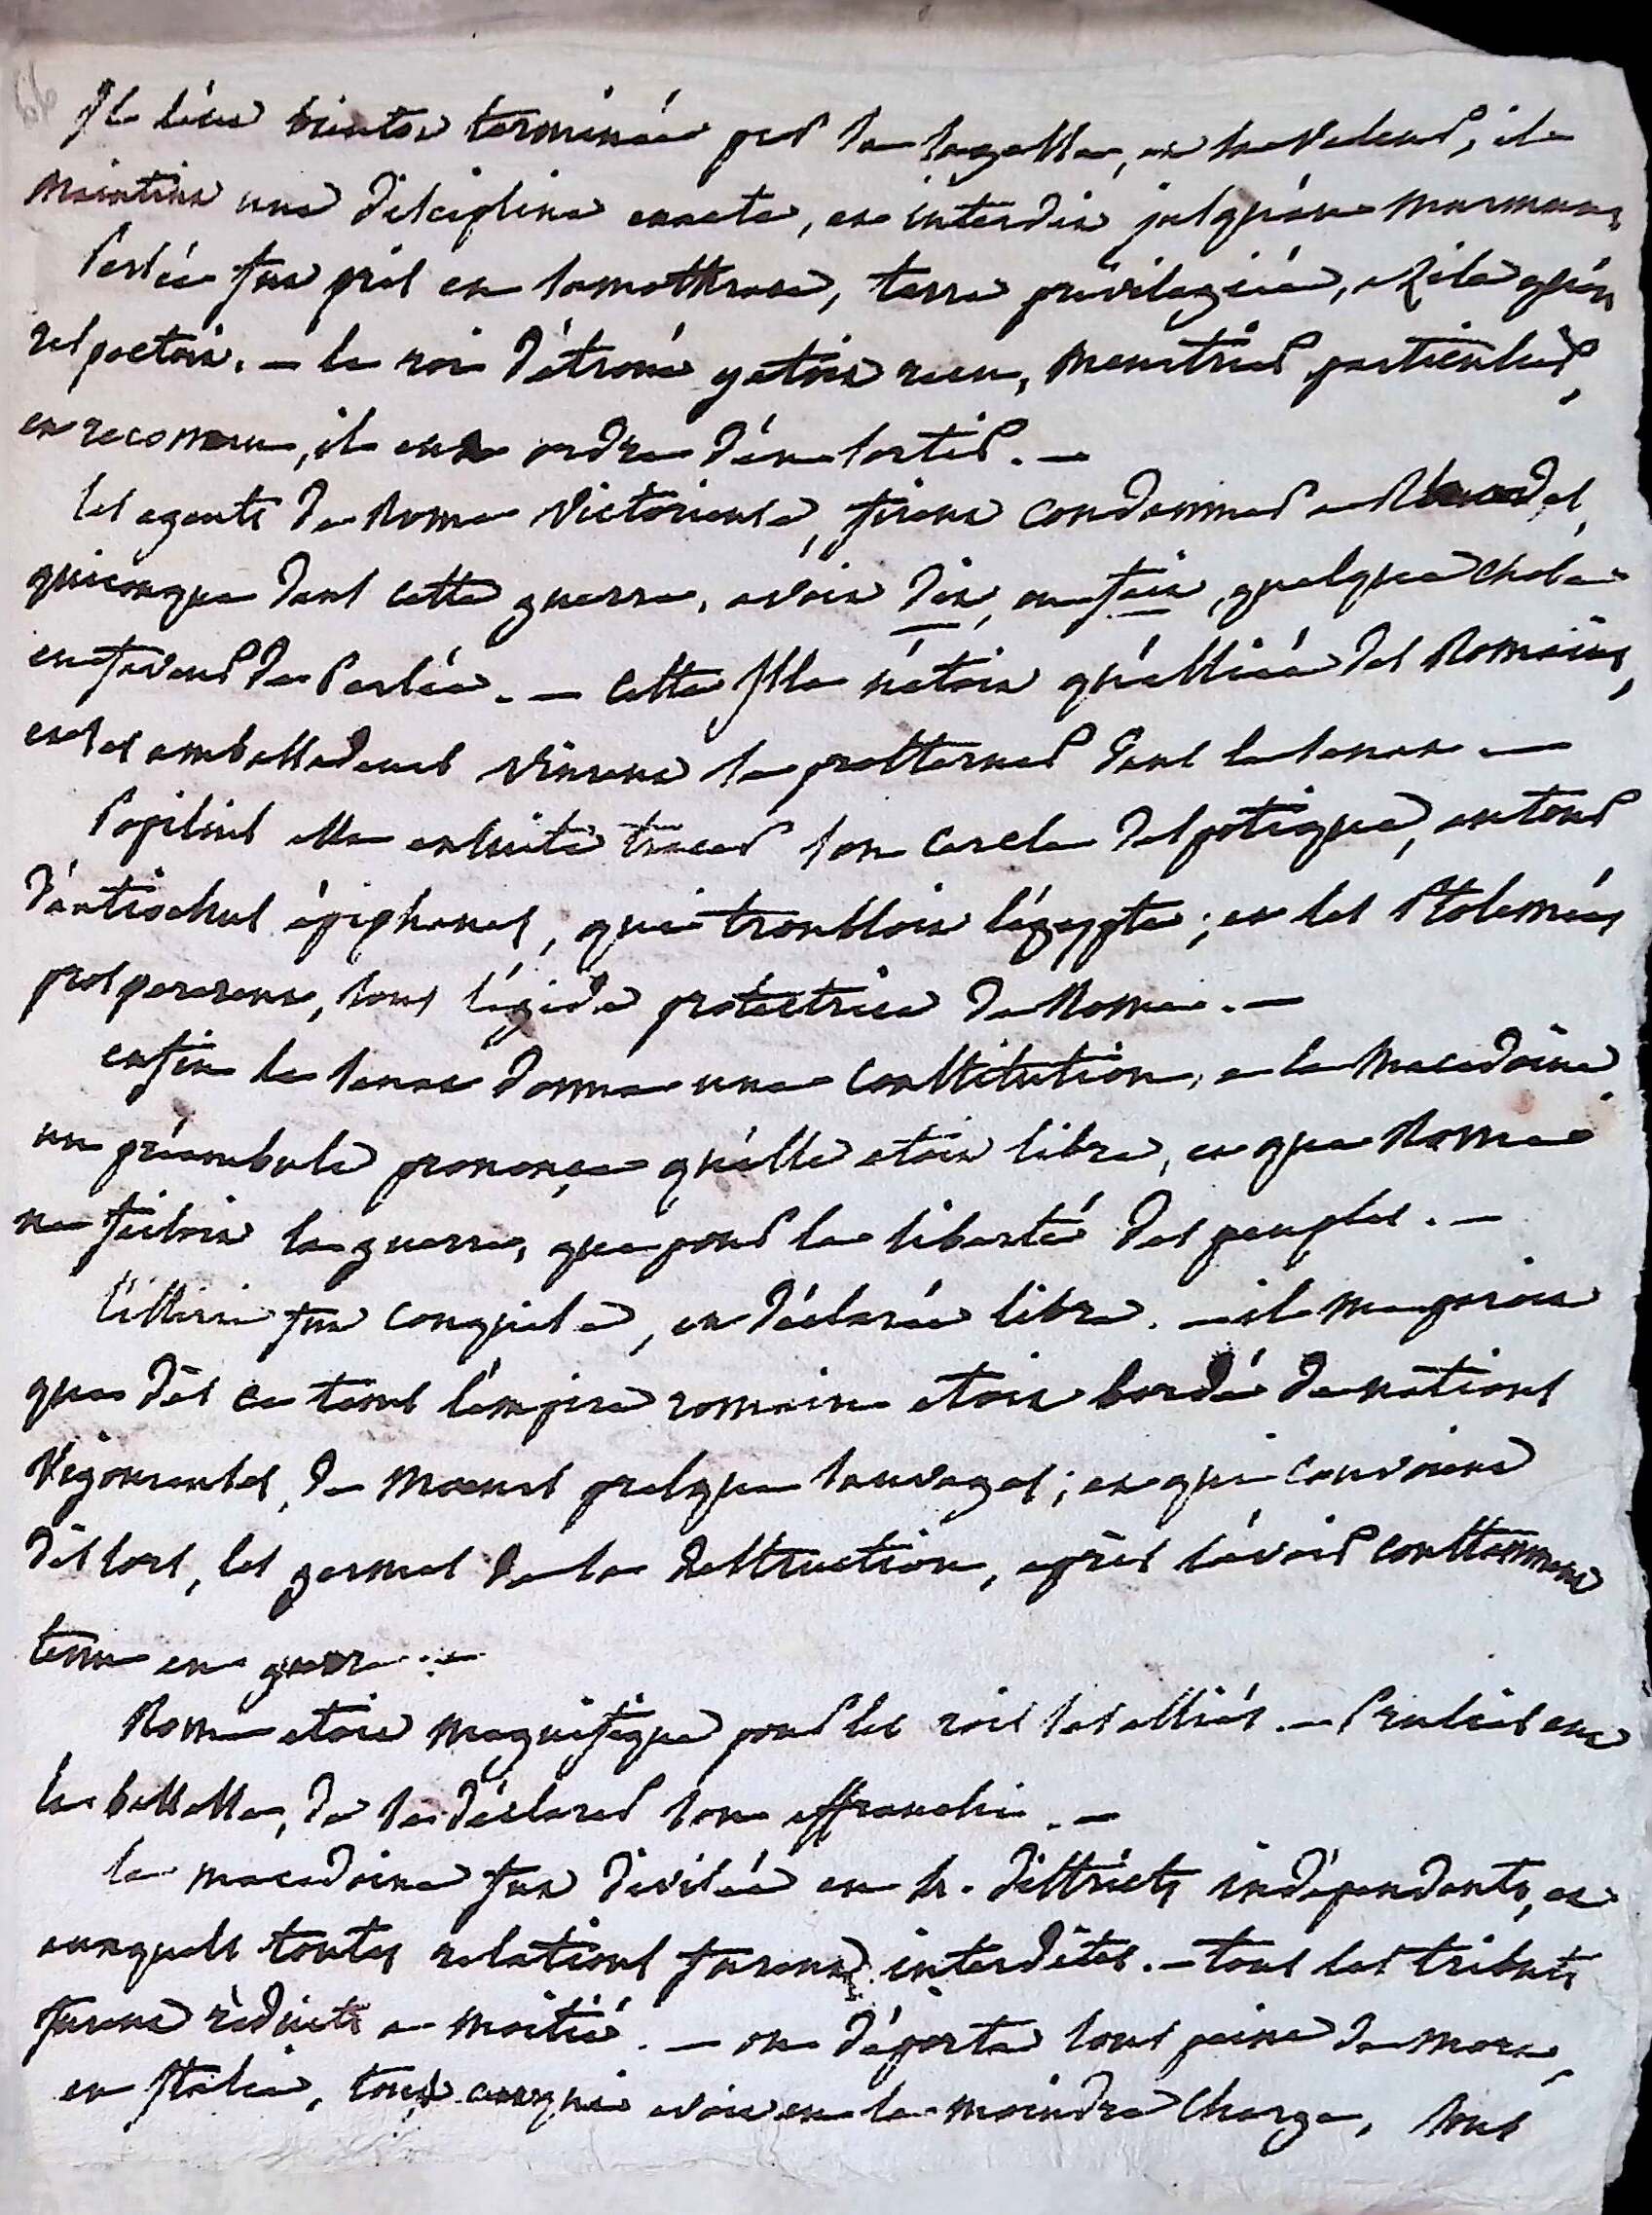 Il l'eut bientot terminée par sa sagesse, et sa valeur, il
maintint une discipline exacte, et interdit jusqu'au murmure
Persée fut pris en samothrace, terre privilegiée, azile qu'on
respectoit. — le roi détroné y etoit reçu, meurtrier particulier,
et reconnu, il eut ordre d'en sortir. —
les agents de Rome victorieuse, firent condamner a Rhodes,
quiconque dans cette guerre, avoit dit, ou fait, quelque chose
en faveur de Persée. — cette Isle n'étoit qu'alliée des Romains,
et ses ambassadeurs vinrent se prosterner dans le senat —
Popilius alla ensuite tracer son cercle despotique, autour
d'antiochus épiphanes, qui troubloit l'égypte ; et les Ptolemées
prospererent, sous l'égide protectrice de Rome. —
enfin le senat donna une constitution, a la Macedoine
un préambule prononça qu'elle etoit libre, et que Rome
ne faisoit la guerre, que pour la liberté des peuples. —
l'illirie fut conquise, et déclarée libre. — il me paroit
que dès ce tems l'empire romain etoit bordé de nations
vigoureuses, de moeurs presque sauvages ; et qui couvoient
dès lors, les germes de sa destruction, après l'avoir constamment
tenu en guerre. —
Rome etoit magnifique pour les rois ses alliés. — Prusias eut
la bassesse, de se déclarer son affranchi. —
la macedoine fut divisée en 4. districts indépendants, et
auxquels toutes relations furent interdites. — tous les tributs
furent réduits a moitié. — on déporta sous peine de mort,
en Italie, tous ceux qui avoient eu la moindre charge, sous